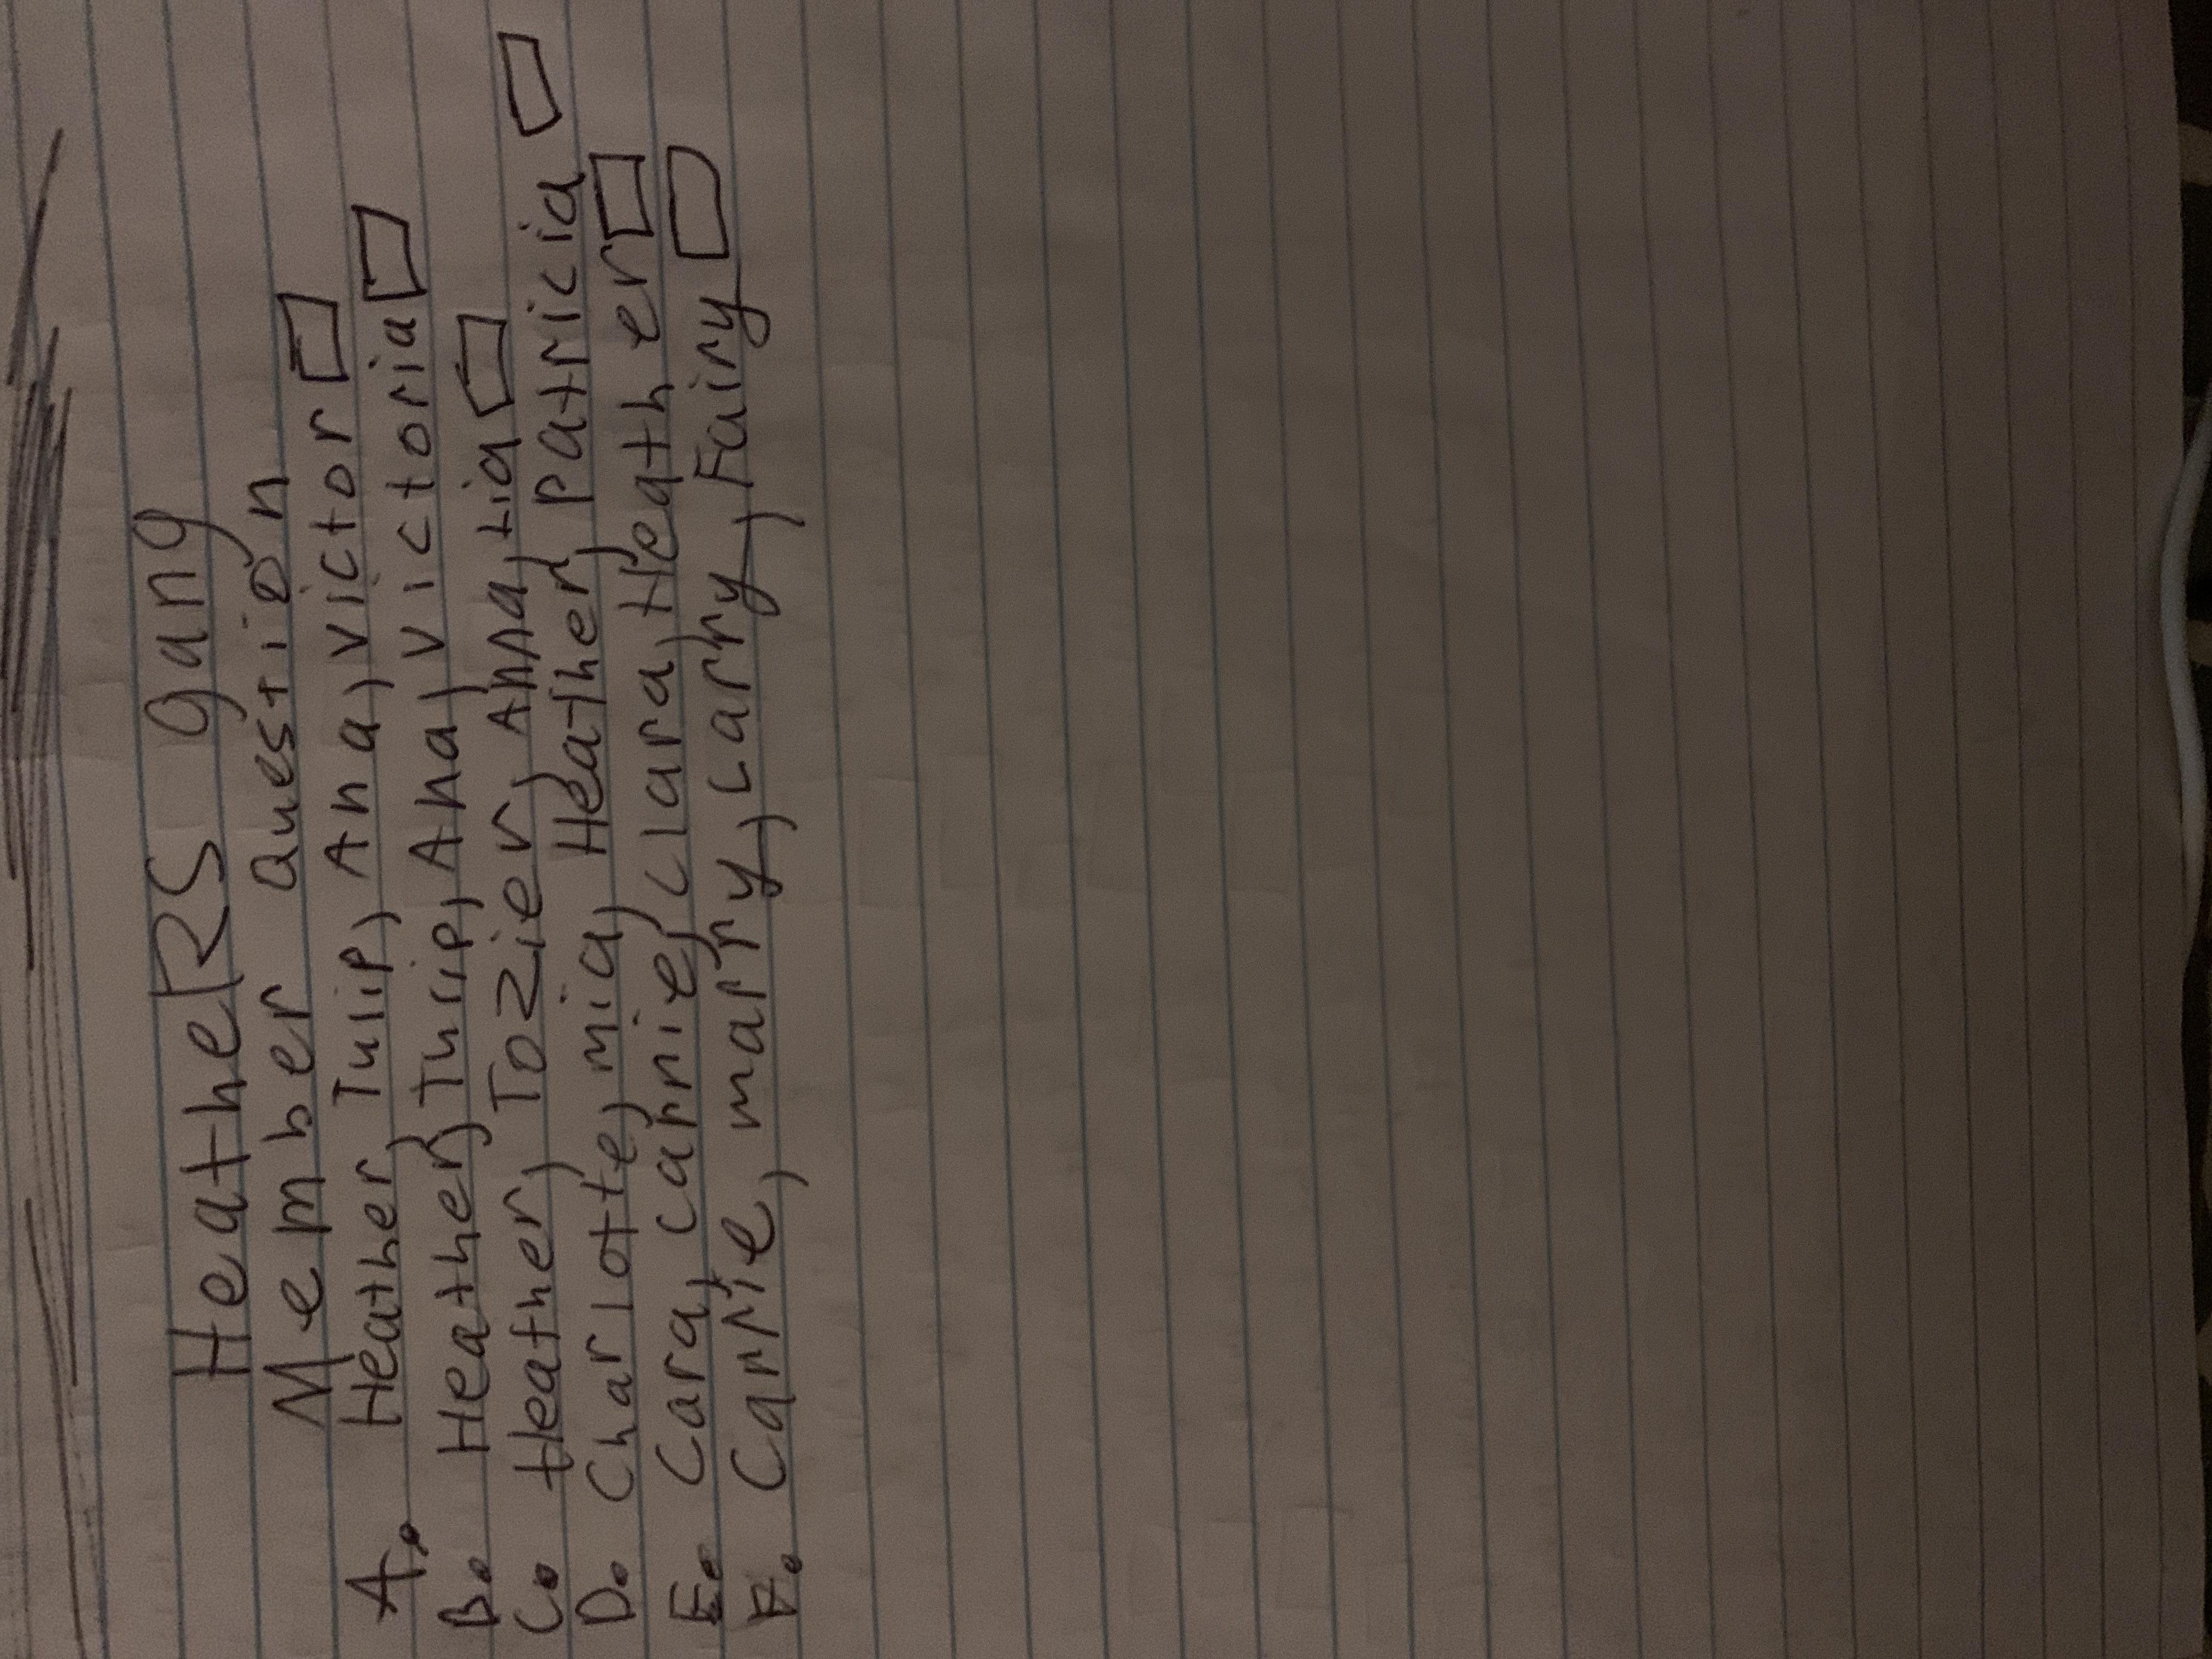 HeatheRS gang
Member question
A. Heather, Tulip, Ana, Victor
B. Heather, Turip, Ana, Victoria
C. Heather, Tozier, Anna, tia
D. Charlotte, mia, Heather, patricia
E. Cara, carrie, clara, Heather
F. Carrie, marry, carry, Fairy